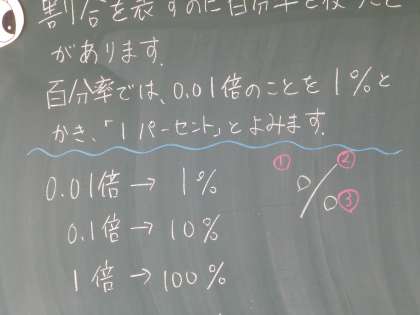 割合を表すのに百分率を使うこと
があります。
百分率では、0.01倍のことを1%と
かき、「1パーセント」とよみます。
0.01倍→ 1%
0.1倍→ 10%
1倍→100%
① ②
% ③